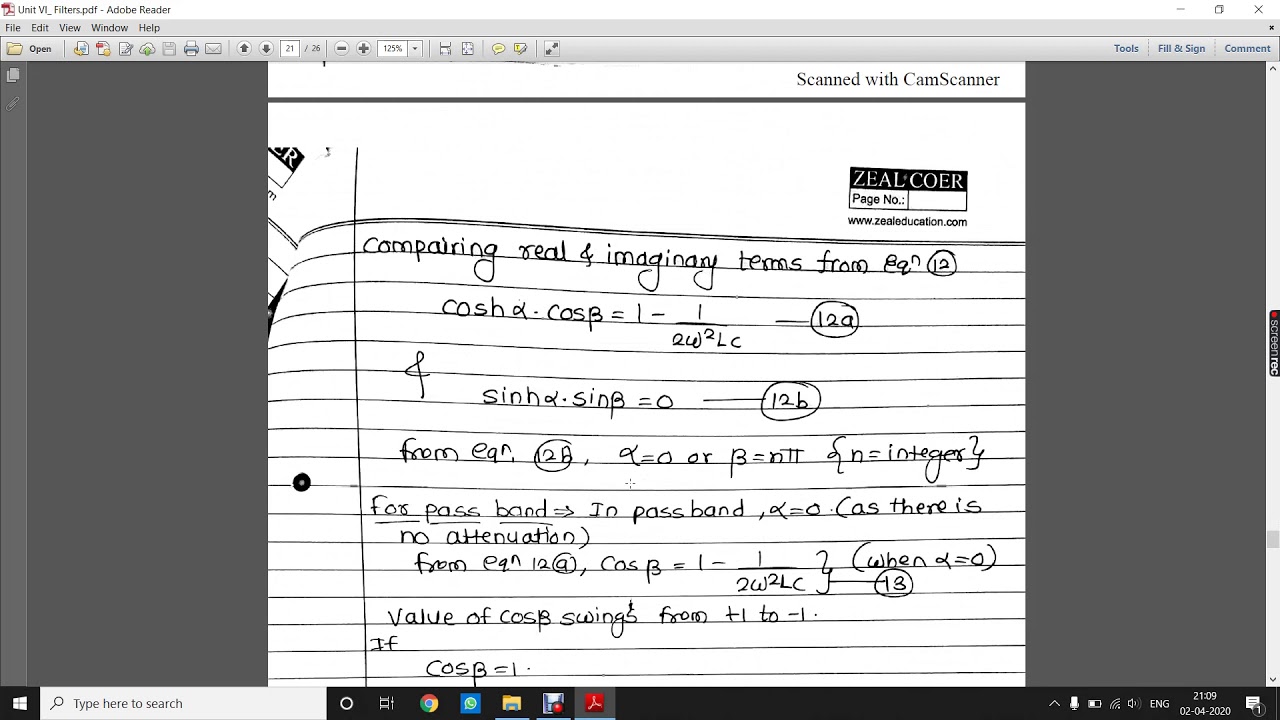 Unit VI_ Filters.pdf - Adobe Reader
File Edit View Window Help
Open 21 / 26 125% Tools Fill & Sign Comment
Scanned with CamScanner
ZEAL COER
Page No.:
www.zealeducation.com
Compairing real & imaginary terms from eqⁿ 12
coshα·cosβ = 1 - 1/2ω²LC — 12a
&
sinhα·sinβ = 0 — 12b
from eqⁿ. 12b, α=0 or β=nπ {n=integer}
for pass band ⇒ In passband, α=0. (as there is
no attenuation)
from eqⁿ 12a, Cosβ = 1 - 1/2ω²LC } (when α=0)
— 13
Value of cosβ swings from +1 to -1.
If
Cosβ=1.
screenrec
Type here to search
ENG
21:09
02-04-2020
1